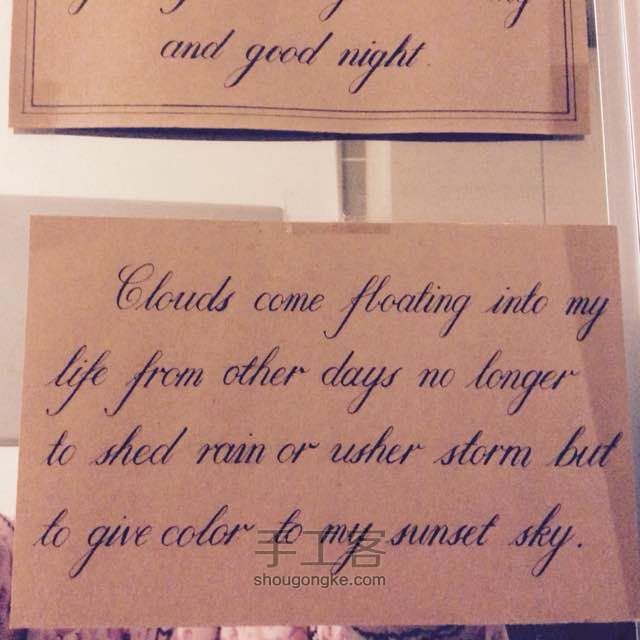 and good night.
Clouds come floating into my
life from other days no longer
to shed rain or usher storm but
to give color to my sunset sky.
手工客
shougongke.com